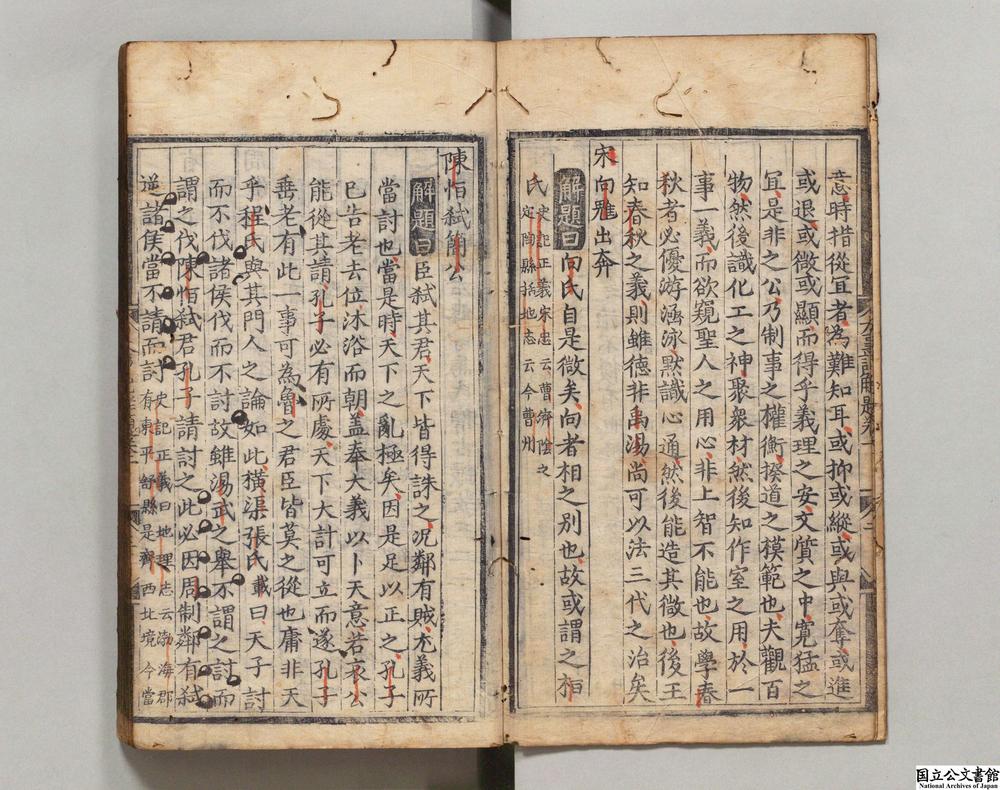 意時措從冝者為難知耳或抑或縱或與或奪或進
或退或微或顯而得乎義理之安文質之中寛猛之
冝是非之公乃制事之權衡揆道之模範也夫觀百
物然後識化工之神聚衆材然後知作室之用於一
事一義而欲窺聖人之用心非上智不能也故學春
秋者必優游涵泳黙識心通然後能造其微也後王
知春秋之義則雖德非禹湯尚可以法三代之治矣
宋向魋出奔
解題曰向氏自是微矣向者桓之别也故或謂之桓
氏史記正義宋忠云曹濟陰之
定陶縣括地志云今曹州
陳恒弑簡公
解題曰臣弑其君天下皆得誅之况鄰有賊尤義所
當討也當是時天下之亂極矣因是足以正之孔子
已告老去位沐浴而朝盖奉大義以卜天意若哀公
能從其請孔子必有所處天下大計可立而遂孔子
垂老有此一事可為魯之君臣皆莫之從也庸非天
乎程氏與其門人之論如此横渠張氏載曰天子討
而不伐諸侯伐而不討故雖湯武之舉不謂之討而
謂之伐陳恒弑君孔子請討之此必因周制鄰有弑
逆諸侯當不請而討史記正義曰地理志云渤海郡
有東平舒縣是齊西北境今當
国立公文書館
National Archives of Japan